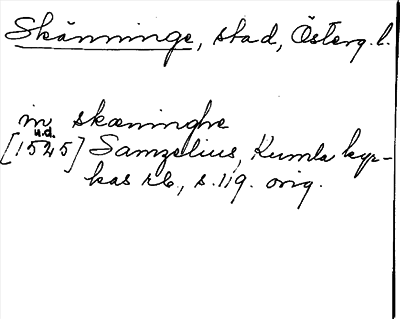 Skänninge, stad, Österg. l.
in skæninghe
u.d.
[1525] Samzelius, Kumla kyr-
kas rb., s. 119. orig.